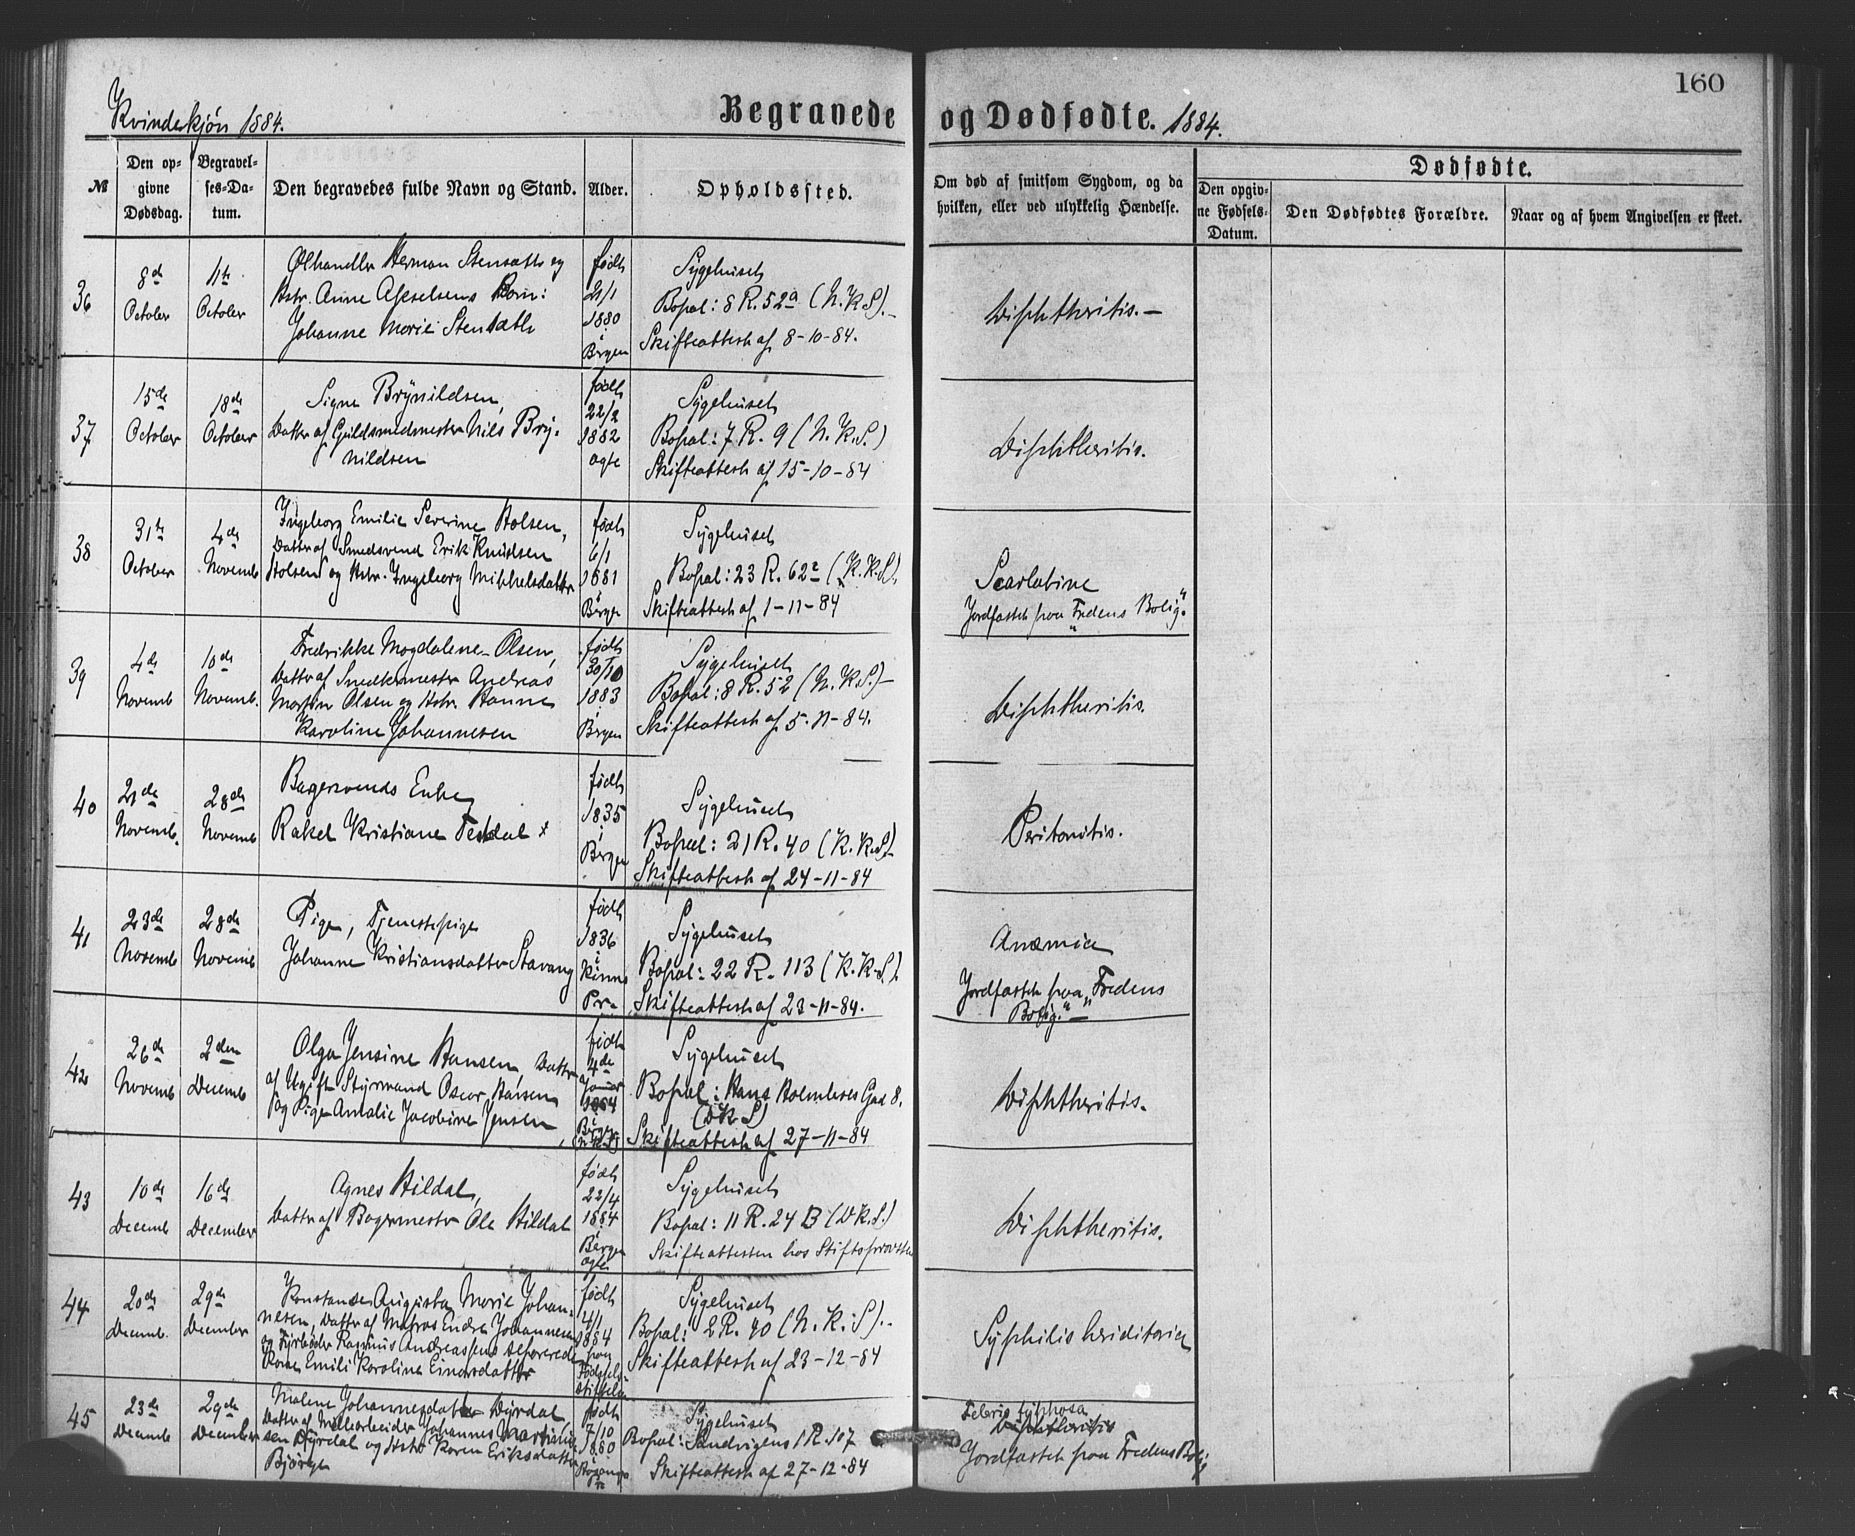 160
Kvindekjøn 1884.
Begravede og Dødfødte. 1884.
№
Den opgivne Dødsdag.
Begravelses-Datum.
Den begravedes fulde Navn og Stand.
Alder.
Opholdssted.
Om død af smitsom Sygdom, og da hvilken, eller ved ulykkelig Hændelse.
Dødfødte.
Den opgivne Fødsels-Datum.
Den Dødfødtes Forældre.
Naar og af hvem Angivelsen er skeet.
36
8de October
11te October
Ølhandler Herman Stensæth og
Hstr. Anne Akselsens Barn:
Johanne Marie Stensæth
født 21/1 1880 i Bergen
Sygehuset
Bopæl: 8 R. 52a (N.K.S).
Skifteattest af 8-10-84.
Diphtheritis.
37
15de October
18de October
Signe Brynildsen,
Datter af Guldsmedmester Nils Brynildsen
født 22/2 1882 ægte
Sygehuset
Bopæl: 7 R. 9 (N.K.S.)
Skifteattest af 15-10-84
Diphtheritis.
38
31te October
4de Novemb
Ingeborg Emilie Severine Holsen,
Datter af Smedsvend Erik Knudsen
Holsen og Hstr. Ingeborg Mikkelsdatter
født 6/1 1881 i Bergen
Sygehuset
Bopæl: 23 R. 62c (K.K.S).
Skifteattest af 1-11-84
Scarlatina
Jordfæstet paa "Fredens Bolig".
39
4de Novemb
10de Novemb.
Fredrikke Magdalene Olsen,
Datter af Snedkermester Andreas
Martin Olsen og Hstr. Hanne
Karoline Johannesen
født 30/10 1883 i Bergen
Sygehuset
Bopæl: 8 R. 52 (N.K.S.)
Skifteattest af 5-11-84.
Diphtheritis.
40
21de Novemb.
28de Novemb
Bagersvends Enke
Rakel Kristiane Tesdal
født 1835 i Bergen
Sygehuset
Bopæl: 21 R. 40 (K.K.S)
Skifteattest af 24-11-84
Peritonitis.
41
23de Novemb
28de Novemb
Pige, Tjenestepige
Johanne Kristiansdatter Stavang
født 1836 i Kinns Pr.
Sygehuset
Bopæl: 22 R. 113 (K.K.S).
Skifteattest af 23-11-84.
Anæmia
Jordfæstet paa "Fredens Bolig."
42
26de Novemb
2den Decemb
Olga Jensine Hansen, Datter
af Ugift Styrmand Oscar Hansen
og Pige Amalie Jacobine Jensen
født 4de Januar 1884 i Bergen (N.K.S)
Sygehuset
Bopæl: Hans Holmboes Gad 8.
(DK S)
Skifteattest af 27-11-84
Diphtheritis.
43
10de Decemb
16de December
Agnes Hildal,
Datter af Bagermester Ole Hildal
født 22/4 1884 Bergen ægte
Sygehuset
Bopæl: 11 R. 24 B (D K.S.)
Skifteattesten hos Stiftsprovsten
Diphtheritis.
44
20de Decemb.
29de December
Konstanse Augusta Marie Johannesen, Datter af Matros Endre Johannesen
og Fyrbøder Rasmus Andreassens
Kone Emili Karoline Einarsdatter
født 4/1 1884 paa Fødselsstiftelsen
Sygehuset
Bopæl: 2 R. 40 (N.K.S).
Skifteattest af 23-12-84
Syphilis heriditaria
45
23de Decemb
29de December
Malene Johannesdatter Dyrdal,
Datter af Johannes Martinussen Dyrdal og Hstr Karen Eriksdatter
Bjørge
født 7/10 1860
Sygehuset
Bopæl: Sandvigens 1 R. 107
Skifteattest af 27-12-84
Febris typhosa
Diphtheritis
Jordfæstet paa Fredens Bolig